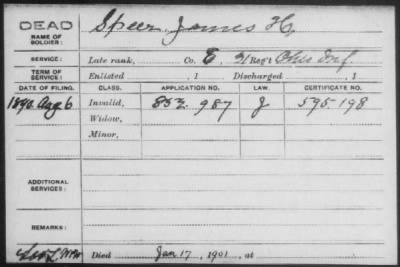 DEAD Speer, James H,
NAME OF
SOLDIER:
SERVICE: Late rank, Co. E, 31 Reg't Ohio Inf.
TERM OF
SERVICE: Enlisted , 1 Discharged , 1
DATE OF FILING. CLASS. APPLICATION NO. LAW. CERTIFICATE NO.
1890 Aug 6 Invalid, 853.987 J 595.198
Widow,
Minor,
ADDITIONAL
SERVICES:
REMARKS:
Died Jan 17, 1901, at